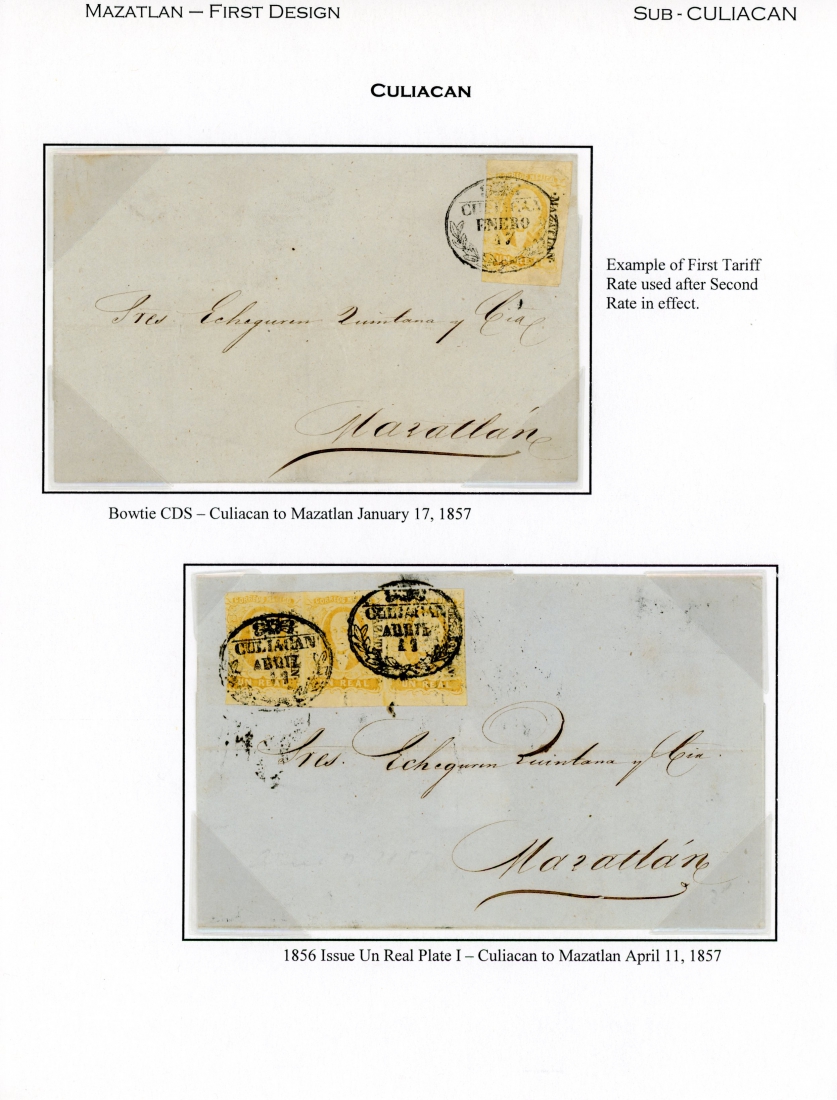 MAZATLAN – FIRST DESIGN
SUB - CULIACAN
CULIACAN
CULIACAN
ENERO
17
MAZATLAN
Example of First Tariff
Rate used after Second
Rate in effect.
Sres Echeguren Quintana y Cia
Mazatlán
Bowtie CDS – Culiacan to Mazatlan January 17, 1857
CULIACAN
ABRIL
11
CULIACAN
ABRIL
11
UN REAL
UN REAL
UN REAL
Sres. Echeguren Quintana y Cia.
Mazatlán
1856 Issue Un Real Plate I – Culiacan to Mazatlan April 11, 1857